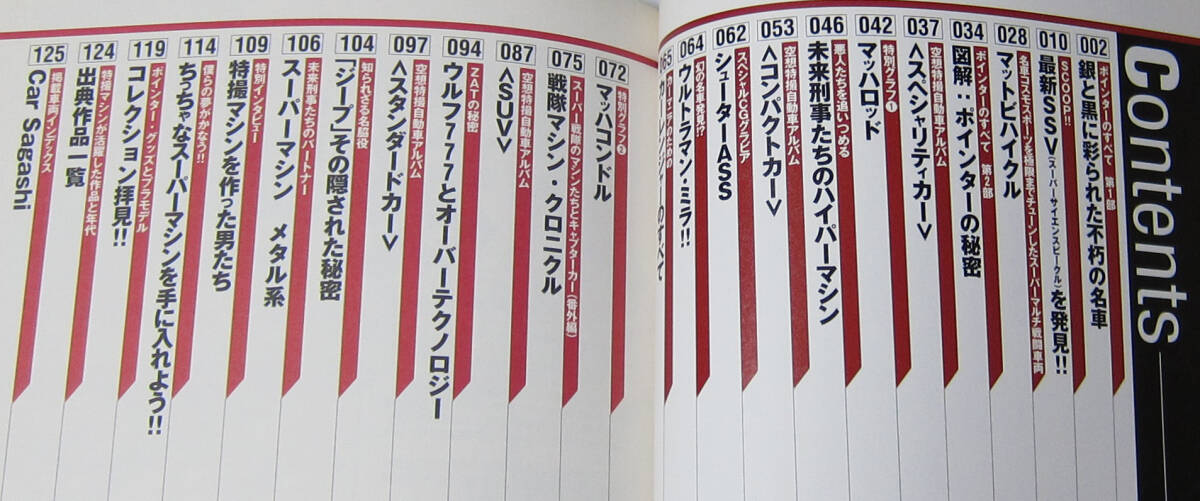 Contents
002
ポインターのすべて 第1部
銀と黒に彩られた不朽の名車
010
SCOOP!!
最新SSV(スーパーサイエンスビークル)を発見!!
028
名車コスモスポーツを極限までチューンしたスーパーマルチ戦闘車両
マットビハイクル
034
ポインターのすべて 第2部
図解:ポインターの秘密
037
空想特撮自動車アルバム
<スペシャリティカー>
042
特別グラフ①
マッハロッド
046
悪人たちを追いつめる
未来刑事たちのハイパーマシン
053
空想特撮自動車アルバム
<コンパクトカー>
062
スペシャルCGグラビア
シューターASS
064
幻の名車発見!?
ウルトラマン・ミラ!!
065
のすべて
072
特別グラフ②
マッハコンドル
075
スーパー戦隊のマシンたちとキャプターカー(番外編)
戦隊マシン・クロニクル
087
空想特撮自動車アルバム
<SUV>
094
ZATの秘密
ウルフ777とオーバーテクノロジー
097
空想特撮自動車アルバム
<スタンダードカー>
104
知られざる名脇役
「ジープ」その隠された秘密
106
未来刑事たちのパートナー
スーパーマシン メタル系
109
特別インタビュー
特撮マシンを作った男たち
114
僕らの夢がかなう!!
ちっちゃなスーパーマシンを手に入れよう!!
119
ポインター・グッズとプラモデル
コレクション拝見!!
124
特撮マシンが活躍した作品と年代
出典作品一覧
125
掲載車両インデックス
Car Sagashi